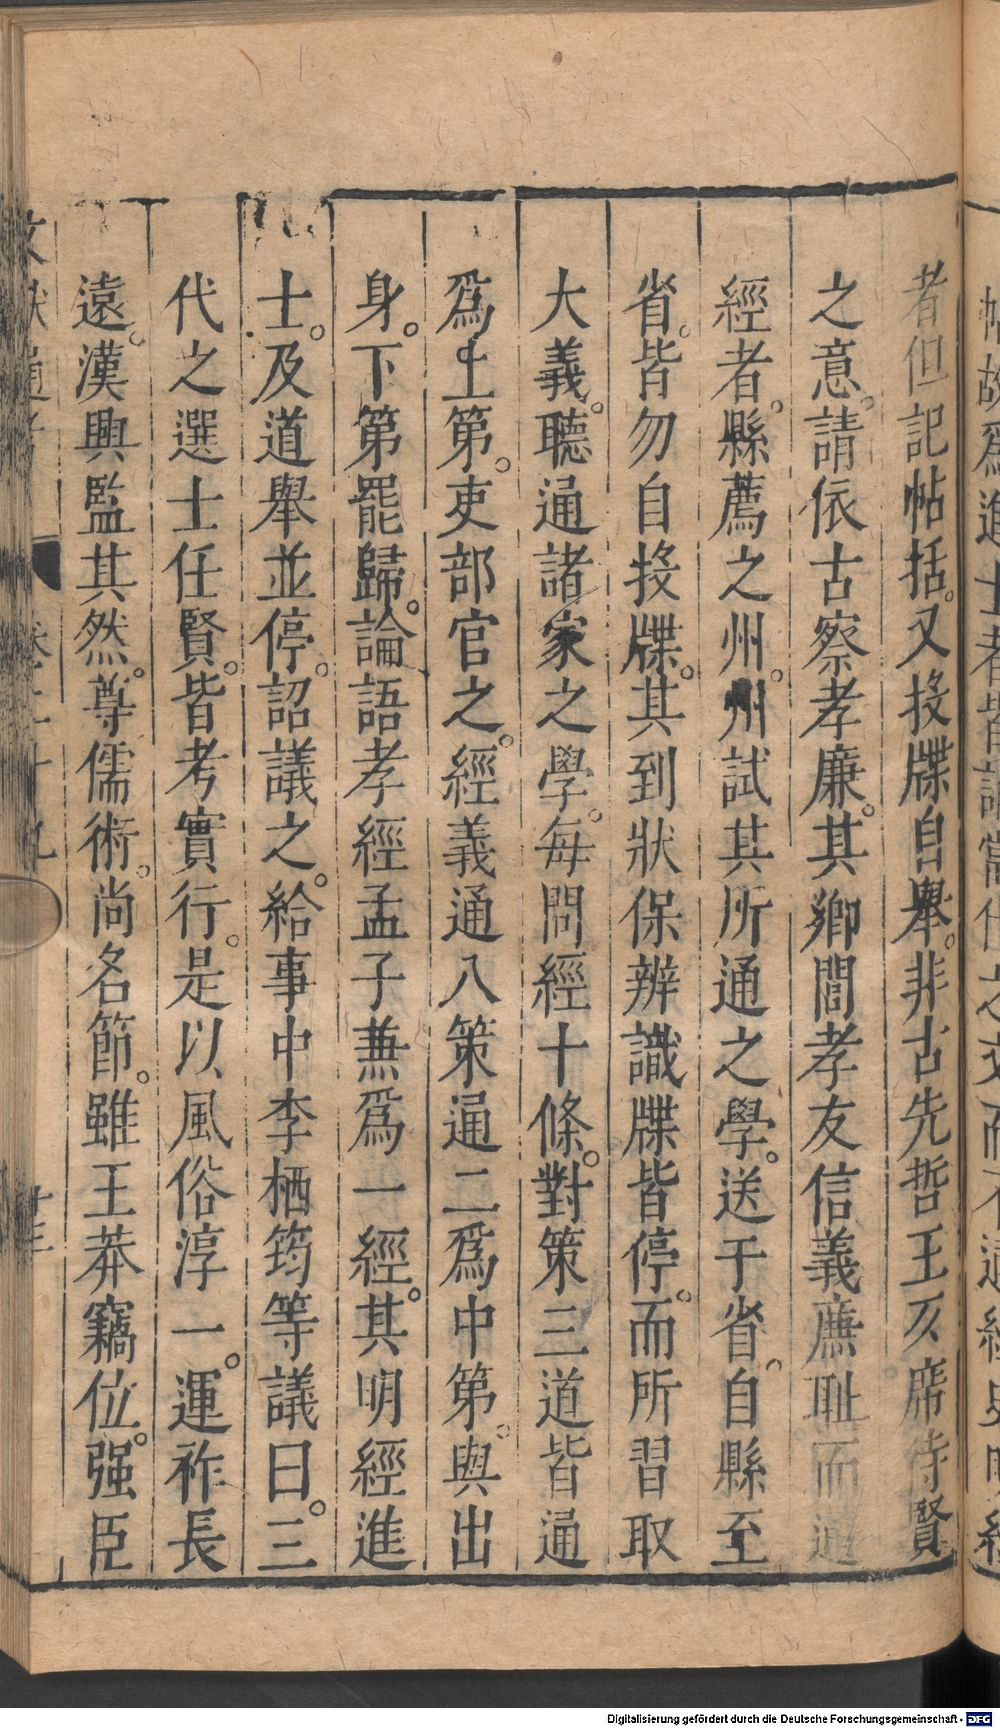 者但記帖括。又投牒自舉。非古先哲王仄席待賢
之意。請依古察孝廉。其鄉閭孝友信義廉耻而通
經者。縣薦之州。州試其所通之學。送于省。自縣至
省。皆勿自投牒。其到狀保辨識牒皆停。而所習取
大義。聽通諸家之學。每問經十條。對策三道皆通
爲上第。吏部官之。經義通八策通二爲中第。與出
身。下第罷歸。論語孝經孟子兼爲一經。其明經進
士。及道舉並停。詔議之。給事中李栖筠等議曰。三
代之選士任賢。皆考實行。是以風俗淳一。運祚長
遠。漢興監其然。尊儒術。尚名節。雖王莽竊位。强臣
Digitalisierung gefördert durch die Deutsche Forschungsgemeinschaft - DFG